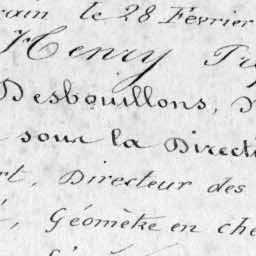 rain le 28 Février
Henry
Desbouillons,
sour la Directi
rt, Directeur des
Géomètre en che